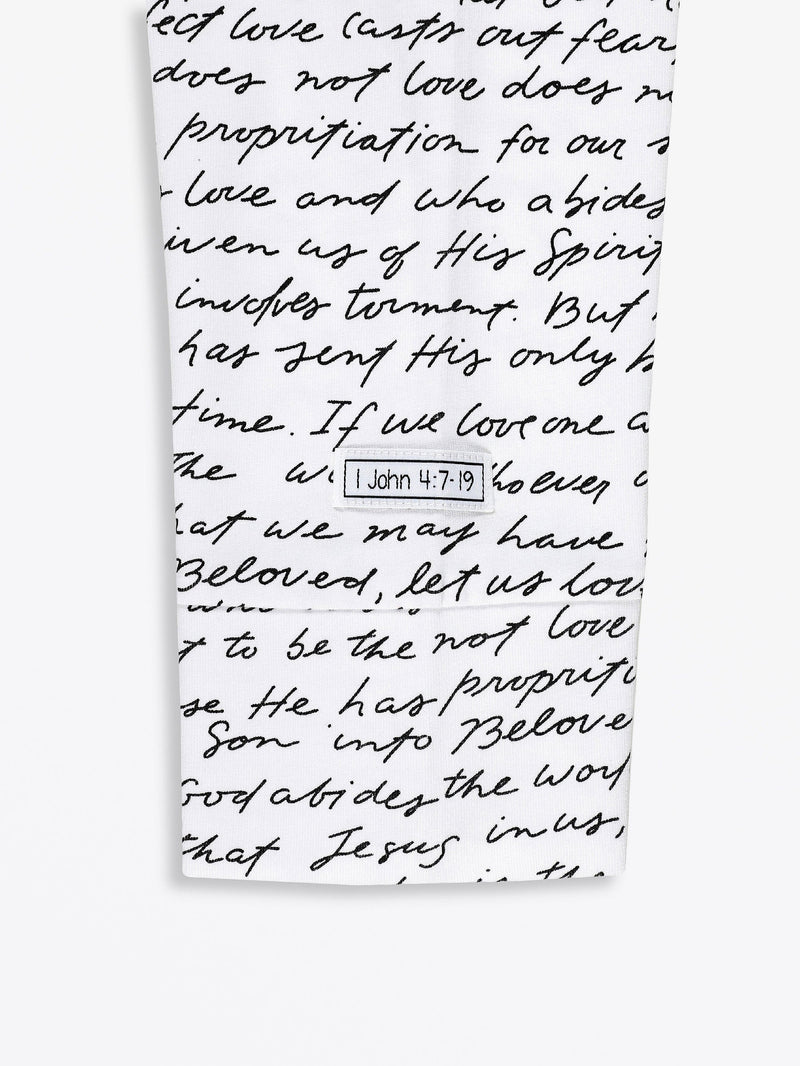 ect love casts out fear,
does not love does n
propritiation for our s
love and who abides
iven us of His Spirit
involves torment. But
has sent His only b
time. If we love one a
the w hoever
1 John 4:7-19
hat we may have
Beloved, let us lov
t to be the not love
se He has propriti
Son into Belove
God abides the worl
that Jesus in us,
is the